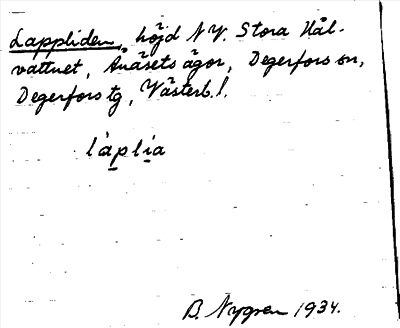 Lappliden, höjd NV. Stora Hål-
vattnet, Ånäsets ägor, Degerfors sn,
Degerfors tg, Västerb. l.
làplia
B. Nygren 1934.